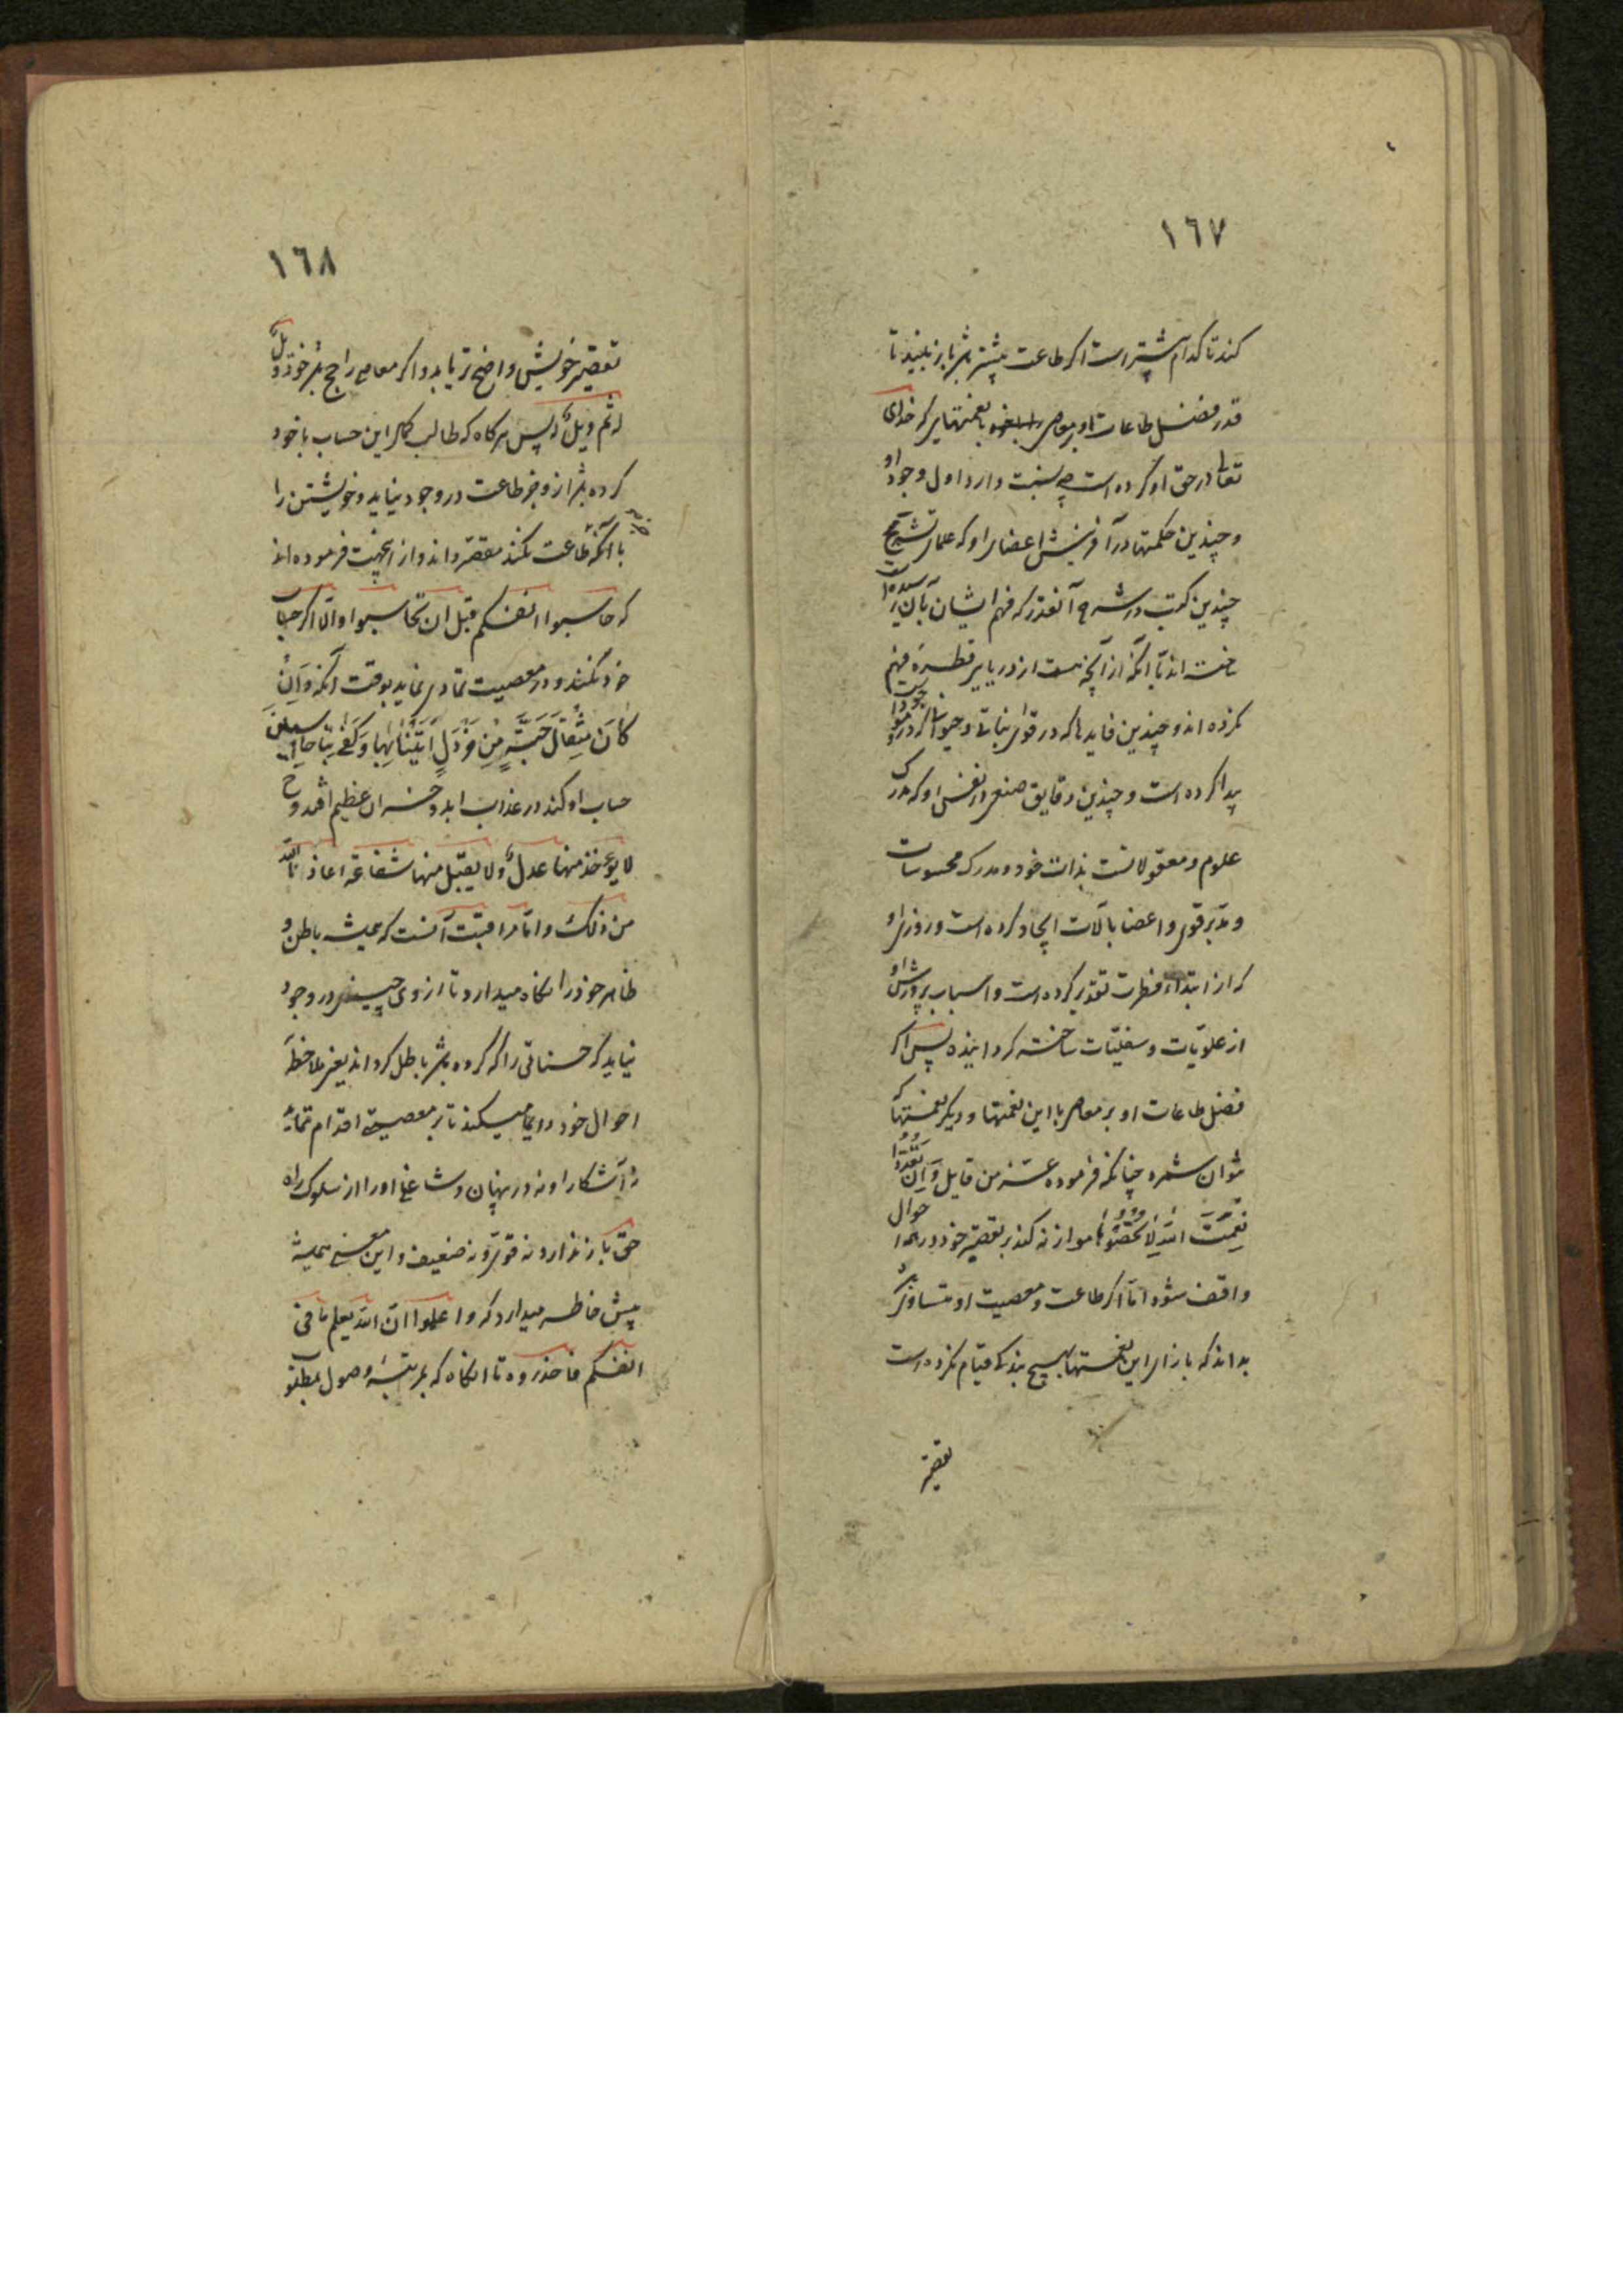 ١٦٧
کند تا کدام بیشتر است اکر طاعت بیشتر باشد باز بیند تا
قدر فضل طاعات او بر معاصی با نعمتهایی که خدای
تعالی در حق او کرده است چه نسبت دارد اول وجود او
و چندین حکمتها در آفرینش اعضای او که علمای تشریح
چندین کتب در شرح آنقدر که فهم ایشان بآن رسیده
ساخته اند با آنکه از آنچه هست از دریایی قطرهٔ فهم
نکرده اند و چندین فایدها که در قوای نباتی و حیوانی که درو موجود است
پیدا کرده است و چندین دقایق صنع در نفس او که مدرک
علوم و معقولاتست بذات خود و مدرک محسوسات
و مدبر قوی و اعضا بآلات ایجاد کرده است و روزی او
که از ابتداء فطرت تقدیر کرده است و اسباب پرورش او
از علویّات و سفلیّات ساخته کردانیده پس اکر
فضل طاعات او بر معاصی با این نعمتها و دیکر نعمتها که
نتوان شمرد چنانکه فرموده عزّ من قایل وَاِن تَعُدّوُا
نِعمَتَ اللهِ لاٰتُحصُوها موازنه کند بر تقصیر خود در همه احوال
واقف شود امّا اکر طاعت و معصیت او متساوی باشد
بداند که بازای این نعمتها بهیچ بندکی قیام نکرده است
تقصیر
١٦٨
تقصیر خویش واضح تر یابد و اکر معاصی راجح باشد خود ویلٌ
له ثم ویلٌ له پس هرکاه که طالب کمال این حساب با خود
کرده باشد از و جز طاعت در وجود نیاید و خویشتن را
با آنکه طاعت کند مقصّر داند و از اینجهت فرموده اند
که حاسبوا انفسکم قبل ان تحاسبوا و الّا اکر حساب
خود نکند و در معصیت تمادی نماید بوقت آنکه وَاِن
کٰانَ مِثقٰالَ حَبَّةٍ مِن خَردَلٍ اَتَینٰا بِهٰا وَکَفیٰ بِنٰا حٰاسِبین
حساب او کند در عذاب ابد و خسران عظیم افتد و ح
لا یؤخذ منها عدلٌ ولا یقبل منها شفاعة اعاذنا الله
من ذلک و امّا مراقبت آنست که همیشه باطن و
ظاهر خود را نکاه میدارد تا از وی چیزی در وجود
نیاید که حسناتی را که کرده باشد باطل کرداند یعنی ملاحظهٔ
احوال خود دایما میکند تا بر معصیتی اقدام ننماید
نه آشکارا و نه در پنهان و شاغلی او را از سلوک راه
حق باز ندارد نه قوی و نه ضعیف و این معنی همیشه
پیش خاطر میدارد که واعلموا انّ الله یعلم ما فی
انفسکم فاحذروه تا انکاه که بمرتبهٔ وصول بمطلوب